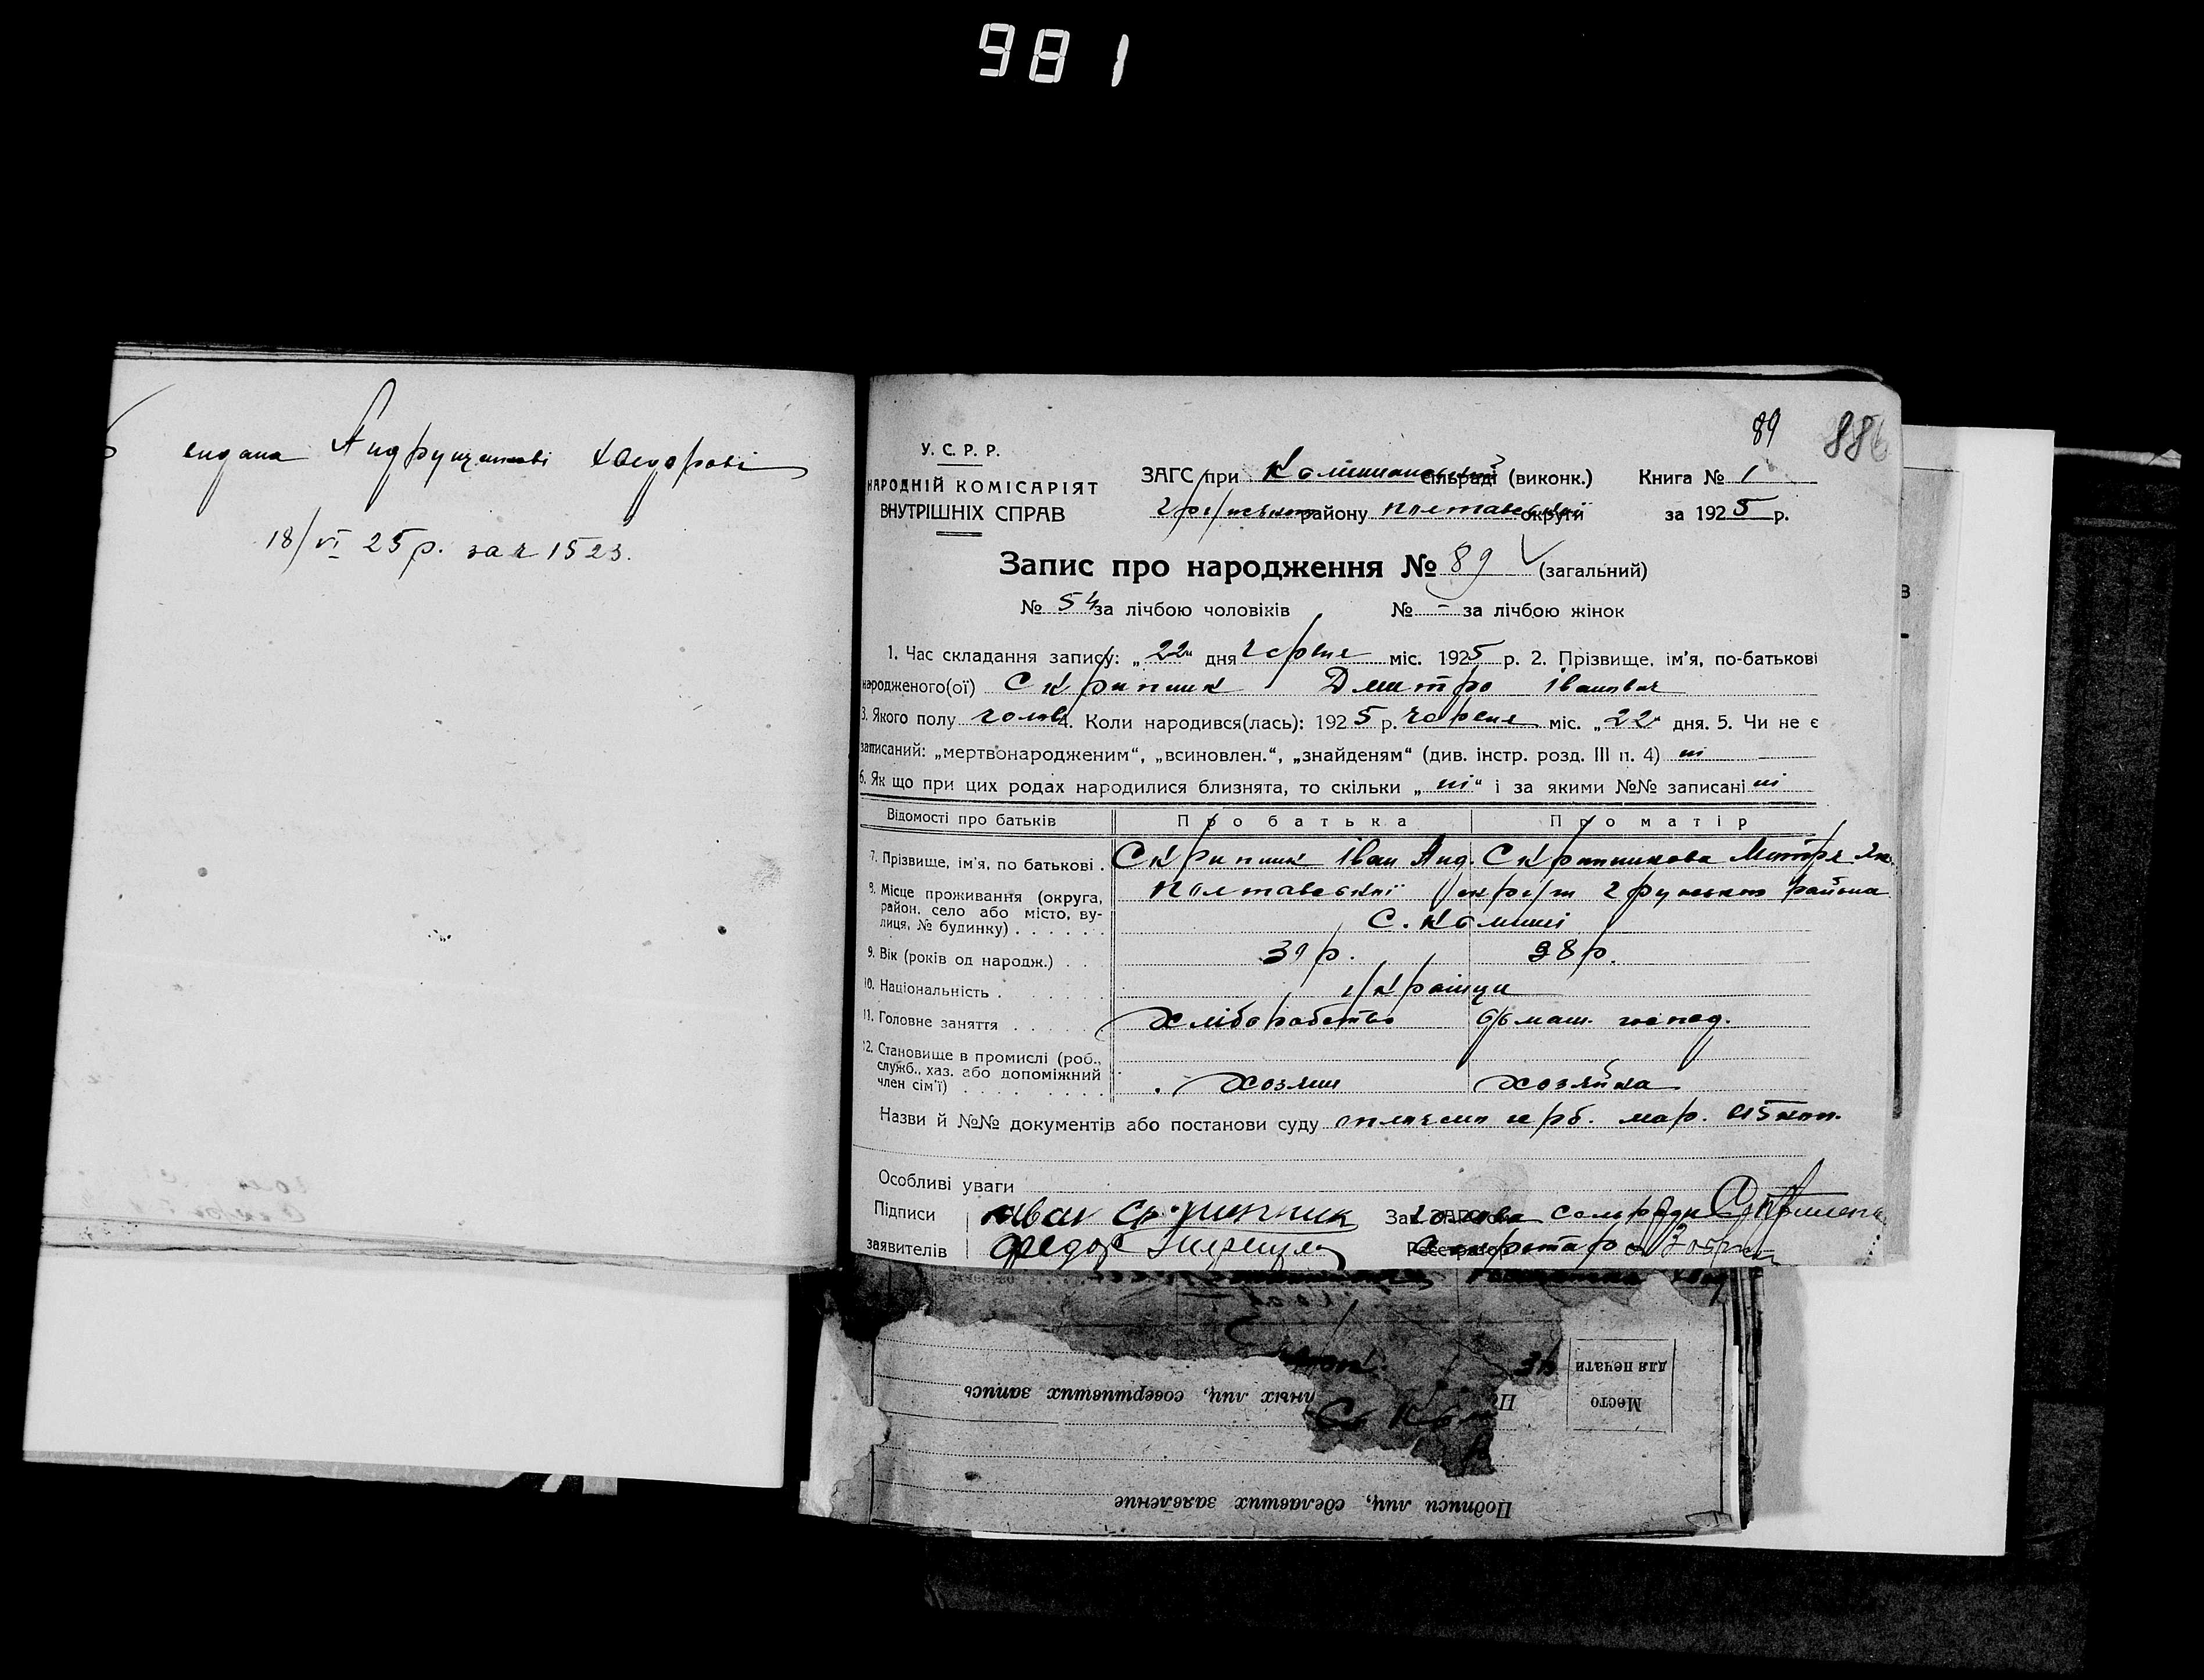 981
видана Андрущенкові Хведорові
18/VI 25 р. за № 1523.
89 886
У. С. Р. Р.
НАРОДНІЙ КОМІСАРІЯТ
ВНУТРІШНІХ СПРАВ
ЗАГС при Комишанській сільраді (виконк.) Книга № 1
району Полтавської округи за 1925 р.
Запис про народження № 89 (загальний)
№ 54 за лічбою чоловіків № - за лічбою жінок
1. Час складання запису: „22“ дня червня міс. 1925 р. 2. Прізвище, ім'я, по-батькові
народженого(ої) Скрипник Дмитро Іванович
3. Якого полу чолов. 4. Коли народився(лась): 1925 р. червня міс. „22“ дня. 5. Чи не є
записаний: „мертвонародженим“, „всиновлен.“, „знайденям“ (див. інстр. розд. III п. 4) ні
6. Як що при цих родах народилися близнята, то скільки „ні“ і за якими №№ записані ні
Відомості про батьків Про батька Про матір
7. Прізвище, ім'я, по батькові . Скрипник Іван Анд. Скрипникова Мотря Як.
8. Місце проживання (округа, район, село або місто, вулиця, № будинку) . . . . . . Полтавської округи Грунського района
С. Комиші
9. Вік (років од народж.) . . . 39 р. 38 р.
10. Національність . . . . . . українці
11. Головне заняття . . . . . Хліборобство домаш. господ.
12. Становище в промислі (роб., служб., хаз. або допоміжний член сім'ї) . . . . . . . . хозяин хозяйка
Назви й №№ документів або постанови суду герб. мар. 15 коп.
Особливі уваги
Підписи Іван Скрипник Зав. ЗАГСом Голова сельради
заявителів Федор Реєстратор Секретар
Место
для печати
Подписи лиц, сделавших заявление
ных лиц, совершивших запись